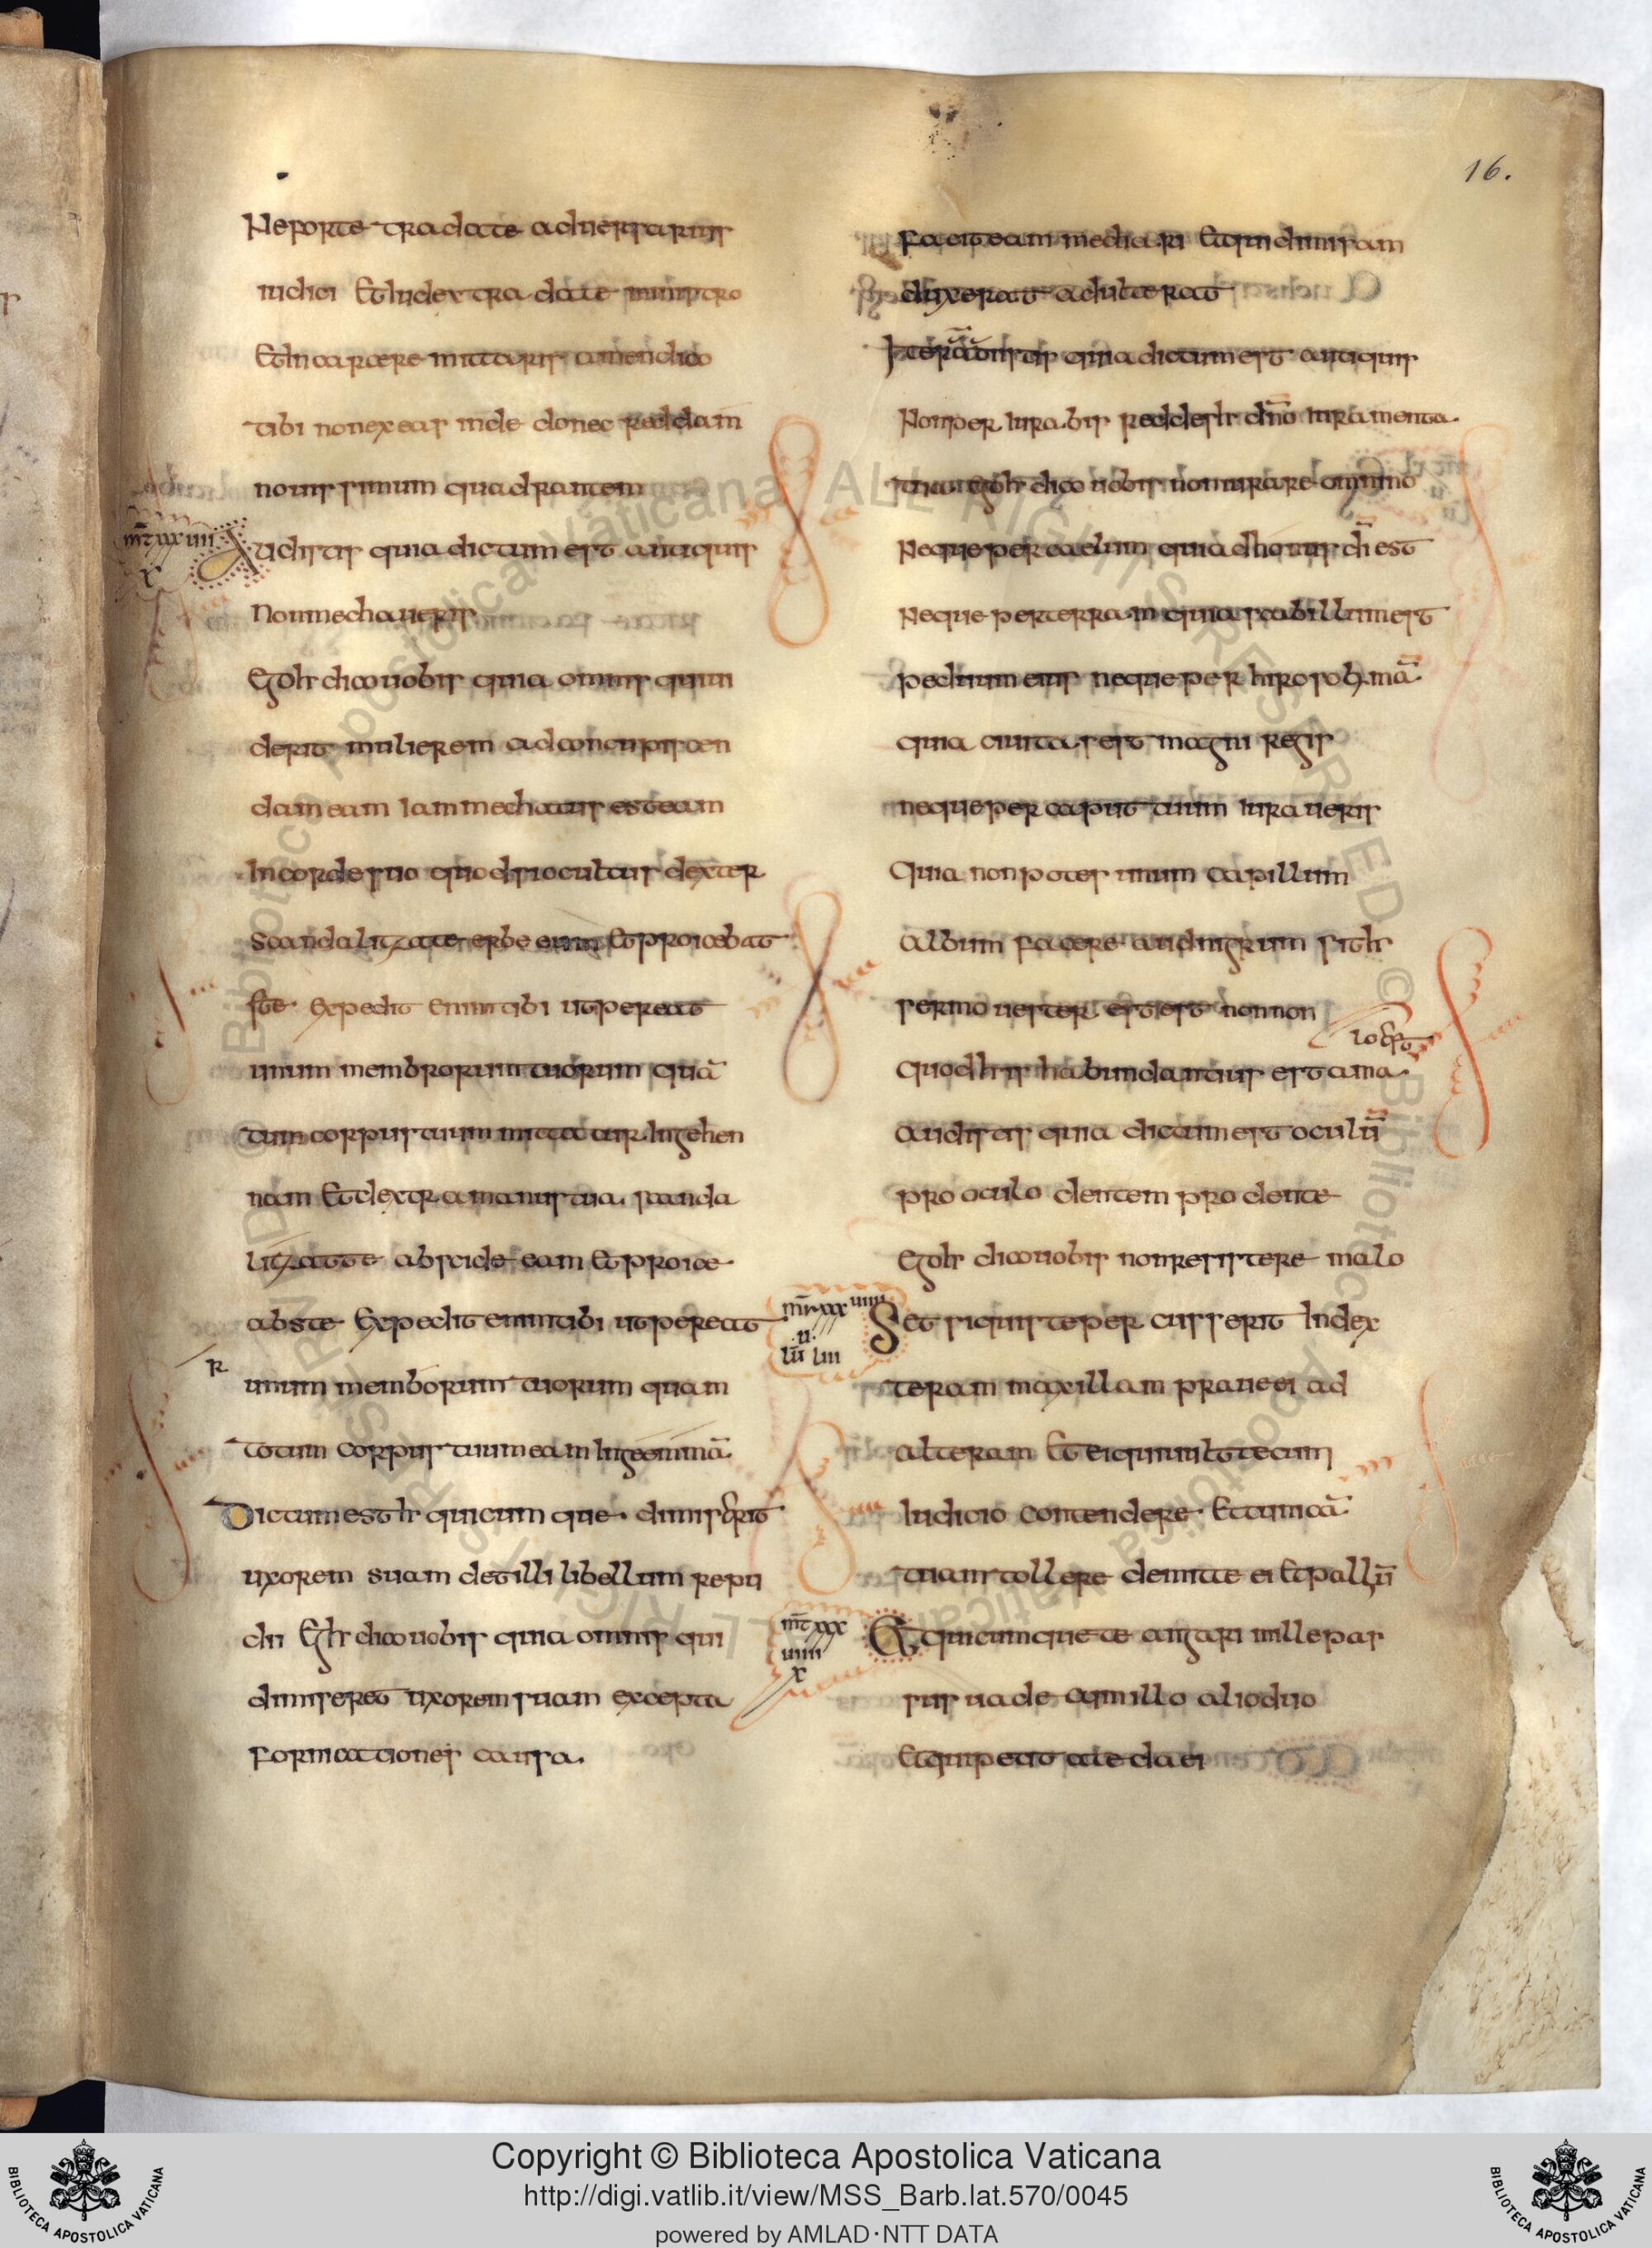 16.
Neforte tradat te aduersarius
iudici Et Iudex tradat te ministro
Et In carcere mittaris amen dico
tibi non exeas inde donec reddam
nouissimum quadrantem
mt xx uiiii
x
Audistis quia dictum est antiquis
Non mechaueris
Ego hr dico uobis quia omnis qui ui
derit mulierem ad concupiscen
dam eam Iam mechatus est eam
In corde suo quod si oculus dexter
scandalitzat te erbe eum Et proice bat
ste Expedit enim tibi ut pereat
unum membrorum tuorum quā
tum corpus tuum mittatur In gehen
nam Et dextra manus tua scanda
litzat te abscide eam Et proice
abste Expedit enim tibi ut pereat
R
unum memborum tuorum quam
totum corpus tuum eam In geomnā
Dictum est hr quicumque dimiserit
uxorem suam det illi libellum repu
dii Ego hr dico uobis quia omnis qui
dimiseret uxorem suam excepta
fornicationes causa.
facit eam mechari Et qui dimisam
duxerat adulterat
Iterū audistis quia dictum est antiquis
Non per Iurabis reddes hr dnō Iuramenta
tua Ego hr dico uobis non iurare omnino
Neque per caelum quia thonus dī est
Neque per terram quia scabillum est
pedium eius neque per hirosolymā
quia ciuitas est magni regis
neque per caput tuum Iuraueris
Quia non potes unum capillum
album facere aud nigrum sit hr
sermo uester est est non non
Quod hr his habundantius est ama
lo est
audistis quia dictum est oculū
pro oculo dentem pro dente
Ego hr dico uobis non resistere malo
mt xxx uiiii
u
lū liii
Set si quis te percusserit In dex
teram maxillam praue ei ad
alteram Et ei qui uult tecum
Iudicio contendere Et tunicā
tuam tollere demitte ei Et pallīū
mt xxx
uiiii
x
Et quicumque te angari mille pas
sus uade cum illo alio duo
Et qui petit a te da ei
Copyright © Biblioteca Apostolica Vaticana
http://digi.vatlib.it/view/MSS_Barb.lat.570/0045
powered by AMLAD·NTT DATA
BIBLIOTECA APOSTOLICA VATICANA
BIBLIOTECA APOSTOLICA VATICANA